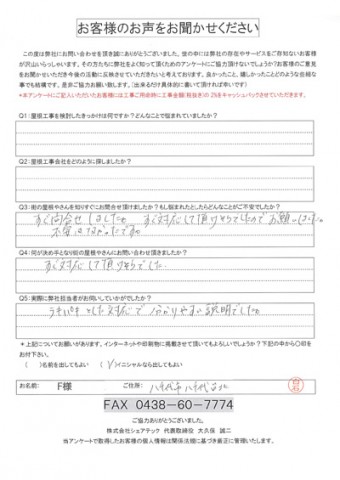 お客様のお声をお聞かせください
この度は弊社にお問い合わせを頂き誠にありがとうございました。世の中には弊社の存在やサービスをご存知ないお客様
が沢山いらっしゃいます。その方たちに弊社をよく知って頂くためのアンケートにご協力頂けないでしょうか?お客様のご意見
をお聞かせいただき今後の活動に反映させていただきたいと考えております。良かったこと、嬉しかったことどのような些細な
事でも結構です。是非ご協力お願い致します。(出来るだけ具体的に書いて頂ければ幸いです)
※本アンケートにご記入いただいたお客様には工事ご用命時に工事金額(税抜き)の2%をキャッシュバックさせていただきます。
Q1:屋根工事を検討したきっかけは何ですか?どんなことで悩まれていましたか?
Q2:屋根工事会社をどのように探しましたか?
Q3:街の屋根やさんを知りすぐにお問合せ頂けましたか?もし悩まれたとしたらどんなことがご不安でしたか?
すぐ問合せしましたが、すぐ対応して頂けそうでしたのでお願いしました。
不安はなかったですか
Q4:何が決め手となり街の屋根やさんにお問い合わせ頂きましたか?
すぐ対応して頂けそうでした
Q5:実際に弊社担当者がお伺いしていかがでしたか?
ラキパキとした対応で分かりやすい説明でした
*上記についてお願いがあります。インターネットや印刷物に掲載させて頂いてもよろしいでしょうか?下記の中から〇印を
お付下さい。
( )名前を出してもよい (レ)イニシャルなら出してもよい
お名前: F様 ご住所: 八千代市八千代台北
FAX 0438-60-7774
ご協力ありがとうございました。
株式会社シェアテック 代表取締役 大久保 誠二
当アンケートで取得したお客様の個人情報は関係法規に基づき厳正に管理いたします。